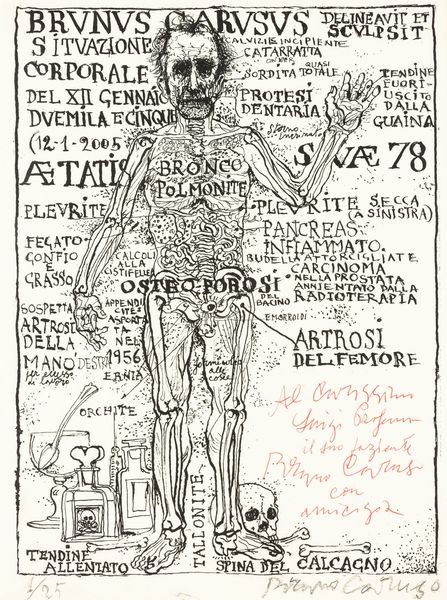 BRVNVS CARVSVS DELINEAVIT ET SCVLPSIT
SITVAZIONE
CORPORALE
DEL XII GENNAIO
DVEMILA E CINQVE
(12-1-2005)
ÆTATIS SVÆ 78
CALVIZIE INCIPIENTE
CATARRATTA
QUASI
SORDITÀ TOTALE
PROTESI
DENTARIA
TENDINE
FUORI-
USCITO
DALLA
GUAINA
BRONCO
POLMONITE
PLEVRITE
PLEVRITE SECCA
(A SINISTRA)
FEGATO
GONFIO
E
GRASSO
CALCOLI
ALLA
CISTIFELLEA
PANCREAS
INFIAMMATO.
BUDELLA ATTORCIGLIATE
CARCINOMA
NELLA PROSTATA
ANNIENTATO DALLA
RADIOTERAPIA
OSTEOPOROSI
DEL
BACINO
EMORROIDI
SOSPETTA
ARTROSI
DELLA
MANO DESTRA
per eccesso
di lavoro
APPENDI
CITE
ASPORTA
TA
NEL
1956
ERNIA
formicolio
alle
cosce
ARTROSI
DEL FEMORE
ORCHITE
Al
Luigi
il suo paziente
Bruno Caruso
con
amicizia
TALLONITE
TENDINE
ALLENTATO
SPINA DEL CALCAGNO
1/25
Bruno Caruso